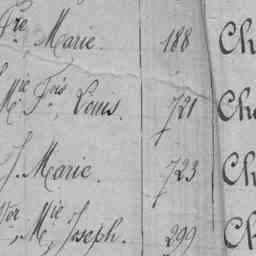 Fre Marie. 188 Ch
Mie Fois, Louis. 721 Che
J. Marie. 723 Ch
Vor, Mie Joseph. 299 Ch